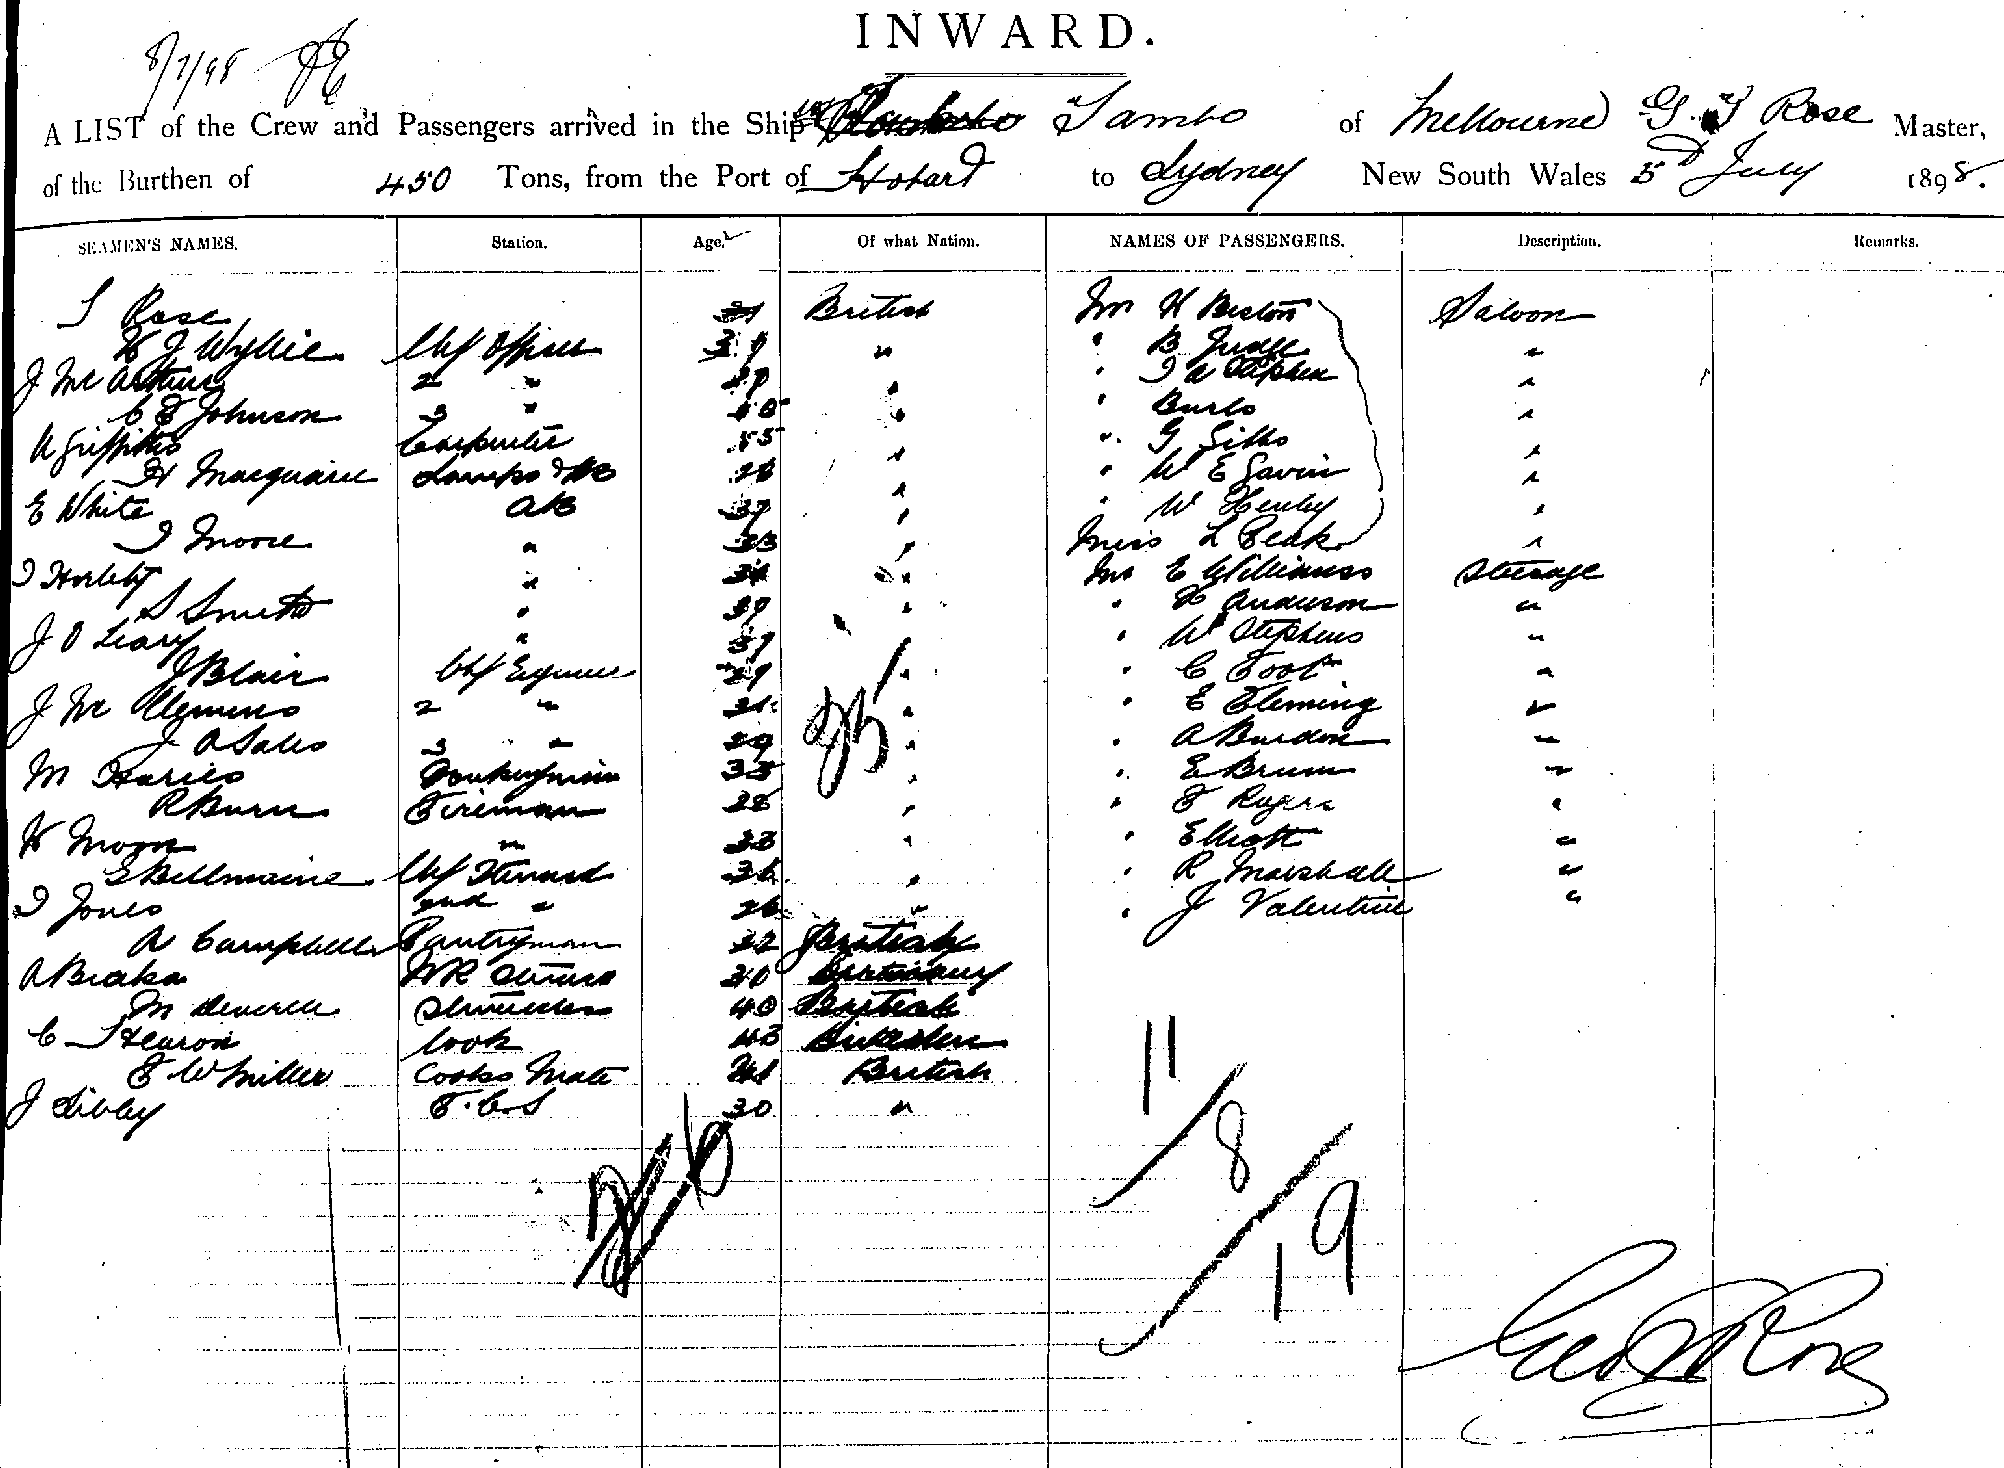 INWARD.
8/7/98
A LIST of the Crew and Passengers arrived in the Ship "Tambo of Melbourne G. T Rose Master,
of the Burthen of 450 Tons, from the Port of Hobart to Sydney New South Wales 5th July 1898.
SEAMEN'S NAMES. Station. Age. Of what Nation. NAMES OF PASSENGERS. Description. Remarks.
Rose British Mr H Beston Saloon
H J Wylie Chf Officer 39 " " B Judge "
J McArthur 2 " " " Stephen "
C E Johnson 3 " " " Burls "
A Griffiths Carpenter 55 " " G Gibbs "
H Macquarie Lamps & AB 28 " " W E Gavin "
E White AB 37 " " W Henley "
T Moore " 23 " Miss L Peak "
" " Mr E Williams Steerage
S Smith " 39 " " H Anderson "
J O Leary " 37 " " W Stephens "
J Blair Chf Engineer 29 " " C Foot "
J Mc Clemens 2 " " " E Fleming "
J A Sales 3 " 29 " " A Burdon "
M Haries Donkeyman 35 " " E Brum "
R Burn Fireman 28 " " F Rogers "
H Moon " 33 " " Elliott "
E Bellmaine Chf Steward 36 " " R Marshall "
T Jones 2nd " 26 " " J Valentine "
A Campbell Pantryman 22 British
A Beaka Steward 30 Germany
M Deverell Stewardess 40 British
C Hearon Cook 43
F W Miller Cooks Mate 21 British
J Sibley F.C.S 30 "
25
11
8
19
Geo T Rose